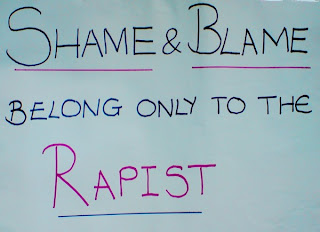 SHAME & BLAME
BELONG ONLY TO THE
RAPIST